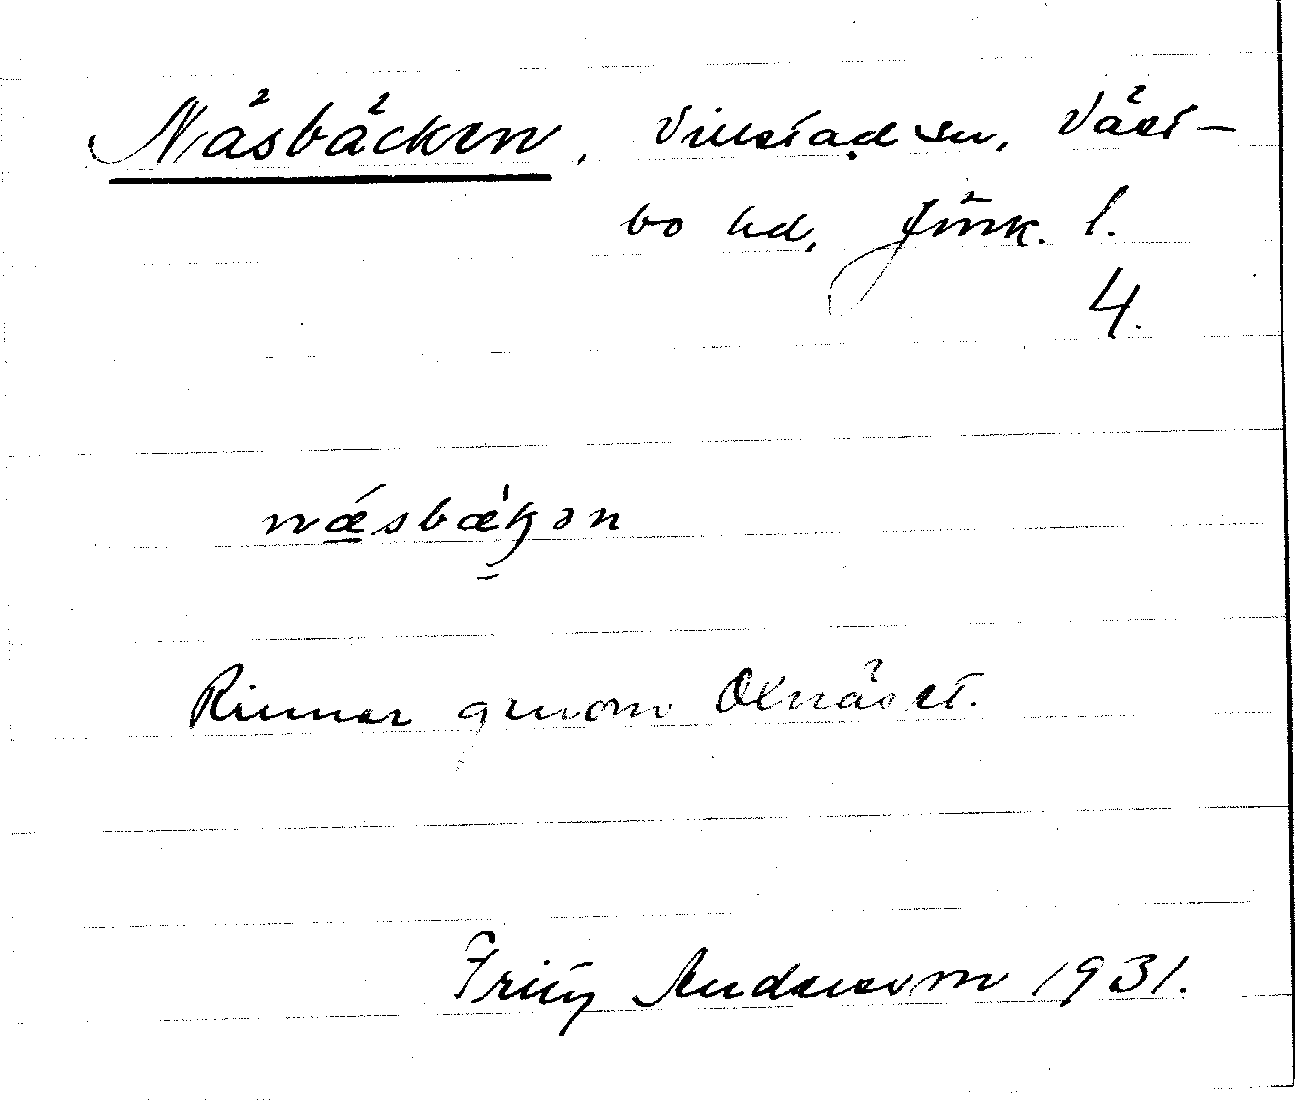 Näsbäcken, Villstad sn, Väst-
bo hd, Jönk. l.
4.
nǽsbæ̀kən
Rinner genom Olnäset.
Fritz Andersson 1931.